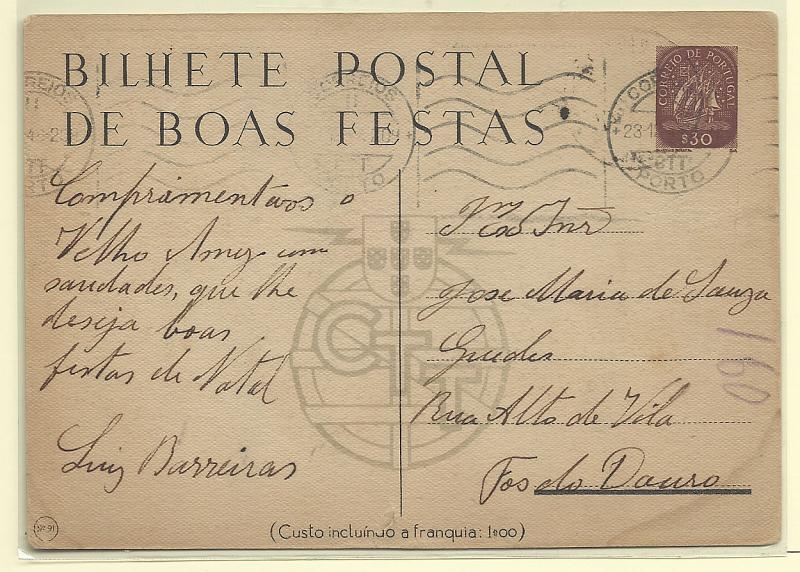 BILHETE POSTAL
DE BOAS FESTAS
CORREIO DE PORTUGAL
$30
CORREIOS
23-1
CTT
PORTO
Comprimentavos o
Velho Amigo com
saudades, que lhe
deseja boas
festas de Natal
Luiz Barreiras
CTT
Exmo Snr
Jose Maria de Souza
Guedes
Rua Alto de Vila
Fos do Douro
160
Nº 91
(Custo incluíndo a franquia: 1$00)